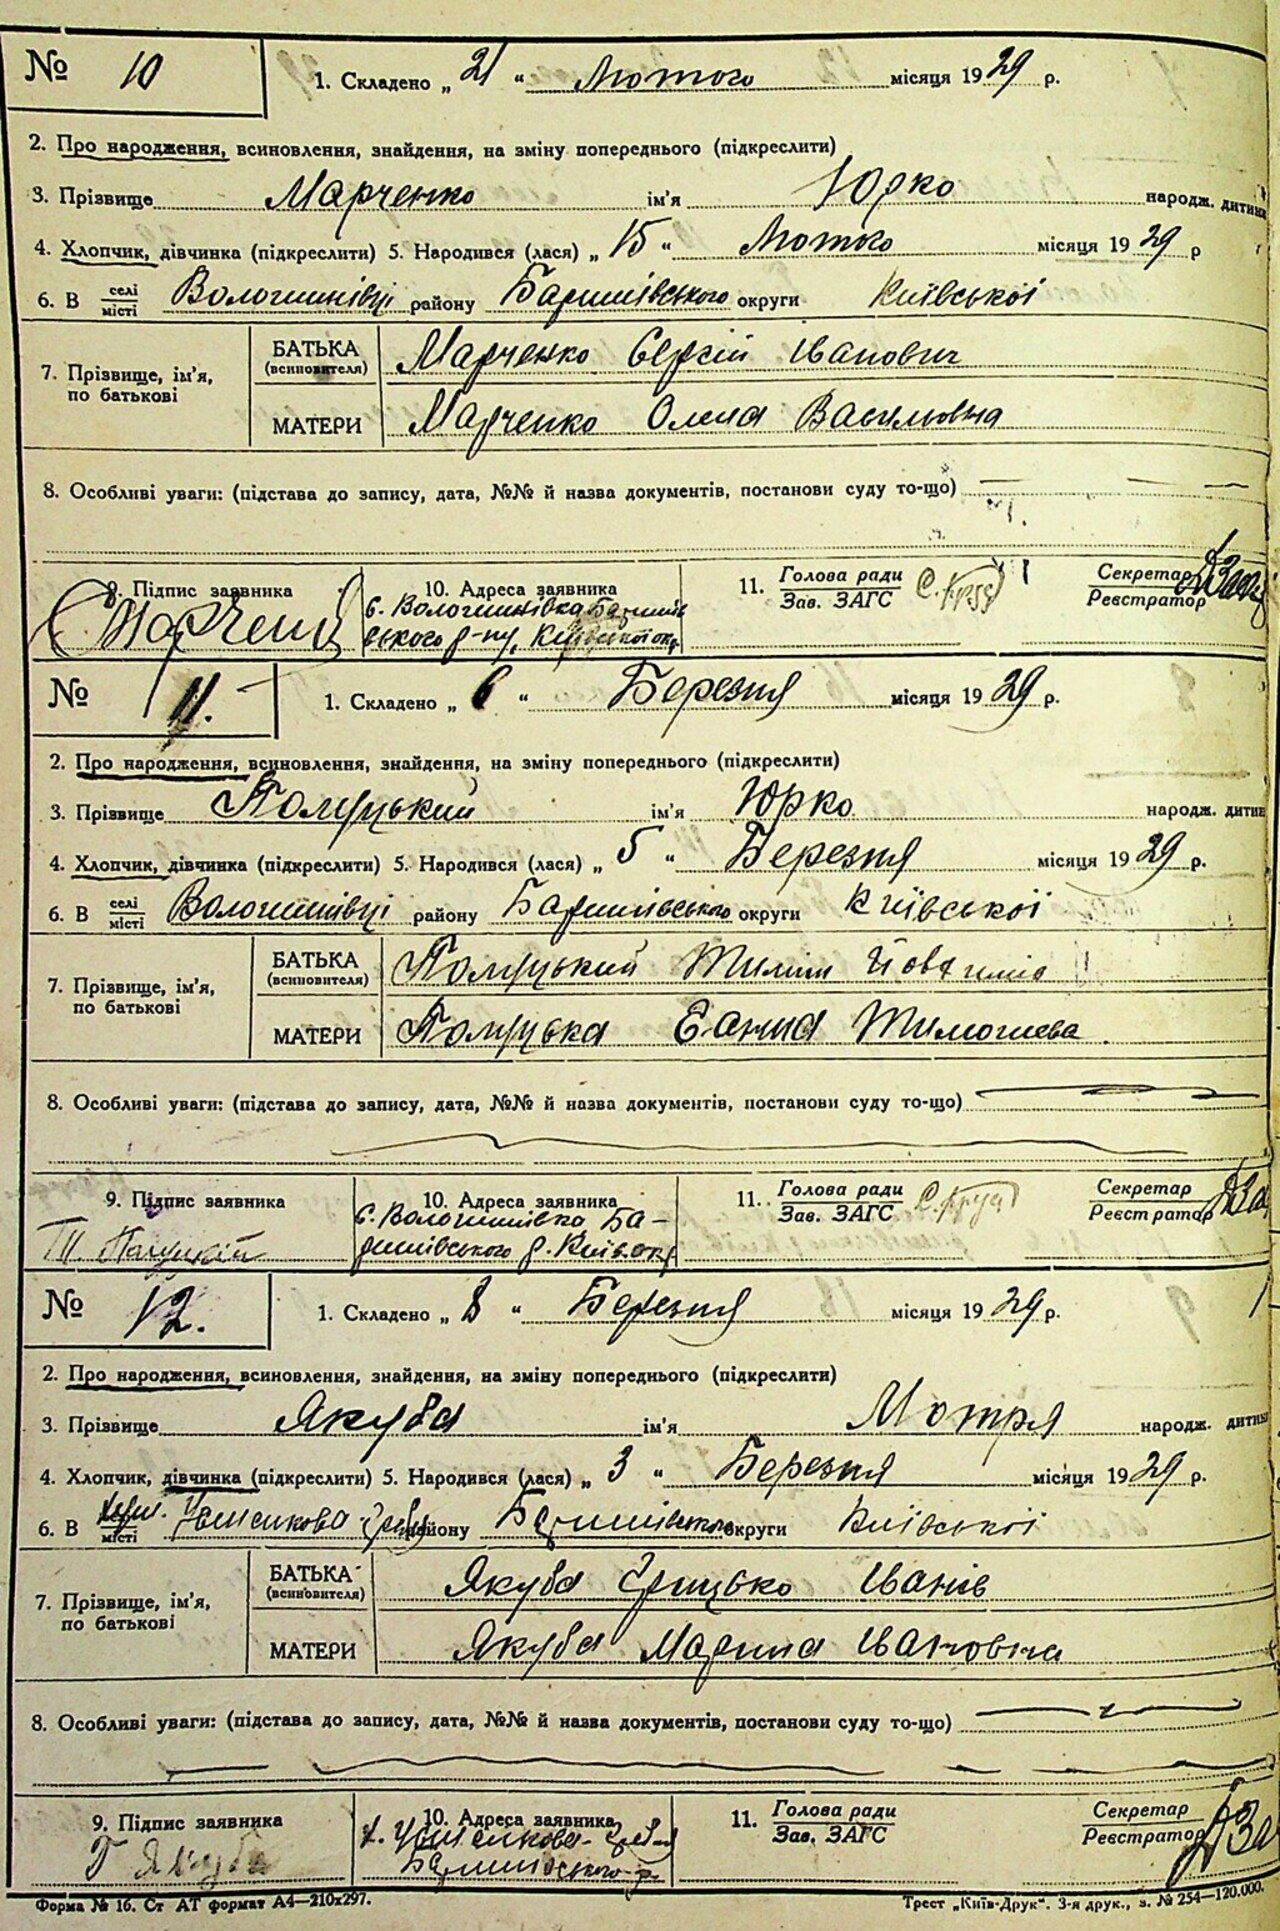 № 10 1. Складено „ 21 “ Лютого місяця 1929 р.
2. Про народження, всиновлення, знайдення, на зміну попереднього (підкреслити)
3. Прізвище Марченко ім'я Юрко народж. дитини
4. Хлопчик, дівчинка (підкреслити) 5. Народився (лася) „ 15 “ Лютого місяця 1929 р
6. В селі місті Волошинівці району Баришівського округи Київської
7. Прізвище, ім'я, по батькові
БАТЬКА (всиновителя) Марченко Сергій Іванович
МАТЕРИ Марченко Олена Васильовна
8. Особливі уваги: (підстава до запису, дата, №№ й назва документів, постанови суду то-що)
9. Підпис заявника 10. Адреса заявника 11. Голова ради Зав. ЗАГС Секретар Реєстратор
с. Волошинівка Баришів
ського р-ну, Київської окр
№ 11. 1. Складено „ 6 “ Березня місяця 1929 р.
2. Про народження, всиновлення, знайдення, на зміну попереднього (підкреслити)
3. Прізвище ім'я Юрко народж. дитин
4. Хлопчик, дівчинка (підкреслити) 5. Народився (лася) „ 5 “ Березня місяця 1929 р.
6. В селі місті Волошинівці району Баришівського округи Київської
7. Прізвище, ім'я, по батькові
БАТЬКА (всиновителя)
МАТЕРИ
8. Особливі уваги: (підстава до запису, дата, №№ й назва документів, постанови суду то-що)
9. Підпис заявника 10. Адреса заявника 11. Голова ради Зав. ЗАГС Секретар Реєстратор
с. Волошинівка Ба-
ришівського р. Київ.окр
№ 12. 1. Складено „ 8 “ Березня місяця 1929 р.
2. Про народження, всиновлення, знайдення, на зміну попереднього (підкреслити)
3. Прізвище Якуба ім'я Мотря народж. дитин
4. Хлопчик, дівчинка (підкреслити) 5. Народився (лася) „ 3 “ Березня місяця 1929 р.
6. В місті району Баришівського округи Київської
7. Прізвище, ім'я, по батькові
БАТЬКА (всиновителя) Якуба Грицько Іванів
МАТЕРИ Якуба Марина Івановна
8. Особливі уваги: (підстава до запису, дата, №№ й назва документів, постанови суду то-що)
9. Підпис заявника 10. Адреса заявника 11. Голова ради Зав. ЗАГС Секретар Реєстратор
Г Якуба
Баришівського р.
Форма № 16. Ст АТ формат А4—210х297. Трест „Київ-Друк“. 3-я друк., з. № 254—120.000.